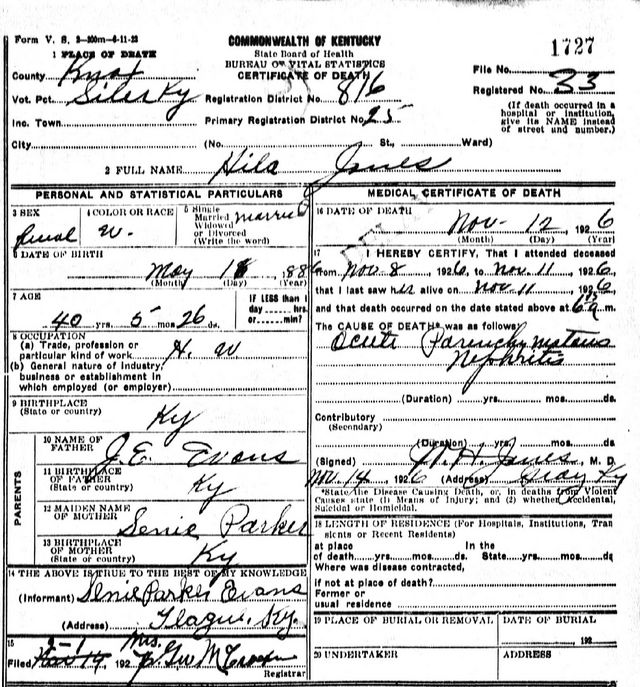 Form V. S. 2-200m-4-11-23
COMMONWEALTH OF KENTUCKY
State Board of Health
BUREAU OF VITAL STATISTICS
CERTIFICATE OF DEATH
1727
1 PLACE OF DEATH
County Knox
File No.
Vot. Pct. Siler Ky
Registration District No. 816
Registered No. 33
Inc. Town
Primary Registration District No. 25
(If death occurred in a hospital or institution, give its NAME instead of street and number.)
City (No. St., Ward)
2 FULL NAME Hila Jones
PERSONAL AND STATISTICAL PARTICULARS
3 SEX
4 COLOR OR RACE W.
5 Single Married Widowed or Divorced (Write the word) married
6 DATE OF BIRTH
May 18 188
(Month) (Day) (Year)
7 AGE
40 yrs. 5 mos. 26 ds.
IF LESS than 1 day hrs. or min?
8 OCCUPATION
(a) Trade, profession or particular kind of work H. W
(b) General nature of Industry, business or establishment in which employed (or employer)
9 BIRTHPLACE
(State or country) Ky
PARENTS
10 NAME OF FATHER J.E. Evans
11 BIRTHPLACE OF FATHER
(State or country) Ky
12 MAIDEN NAME OF MOTHER Senie Parker
13 BIRTHPLACE OF MOTHER
(State or country) Ky
14 THE ABOVE IS TRUE TO THE BEST OF MY KNOWLEDGE
(Informant) Senie Parker Evans
(Address) Ky.
15
Filed Nov 19 192
2-1
Mrs. Geo
Registrar
MEDICAL CERTIFICATE OF DEATH
16 DATE OF DEATH
Nov- 12, 1926
(Month) (Day) (Year)
17 I HEREBY CERTIFY, That I attended deceased
from Nov 8 1926, to Nov. 11 1926,
that I last saw her alive on Nov 11 1926
and that death occurred on the date stated above at 6 a m.
The CAUSE OF DEATH* was as follows:
Acute Parenchymatous
Nephritis
(Duration) yrs. mos. ds.
Contributory
(Secondary)
(Duration) yrs. mos. ds.
(Signed) H. Jones, M. D.
Nov. 14 1926 (Address) Gray Ky
*State the Disease Causing Death, or, in deaths from Violent Causes state (1) Means of Injury; and (2) whether Accidental, Suicidal or Homicidal.
18 LENGTH OF RESIDENCE (For Hospitals, Institutions, Transients or Recent Residents)
at place of death yrs. mos. ds. In the State yrs. mos. ds.
Where was disease contracted,
if not at place of death?
Former or
usual residence
19 PLACE OF BURIAL OR REMOVAL
DATE OF BURIAL
192
20 UNDERTAKER
ADDRESS